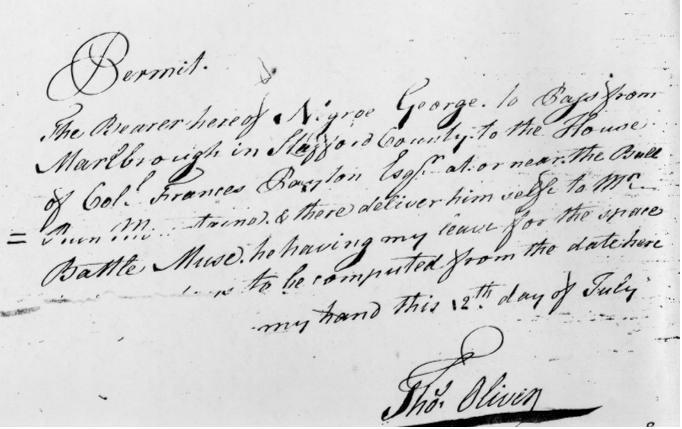 Permit.
The Bearer hereof Negroe George. to Pass from
Marlbrough in Stafford County. to the House
of Colº. Frances Payton Esqr. at or near the Bull
= Run & there deliver him self to Mr.
Battle Muse. he having my leave for the space
to be computed from the date here
my hand this 12th day of July
Thos. Oliver